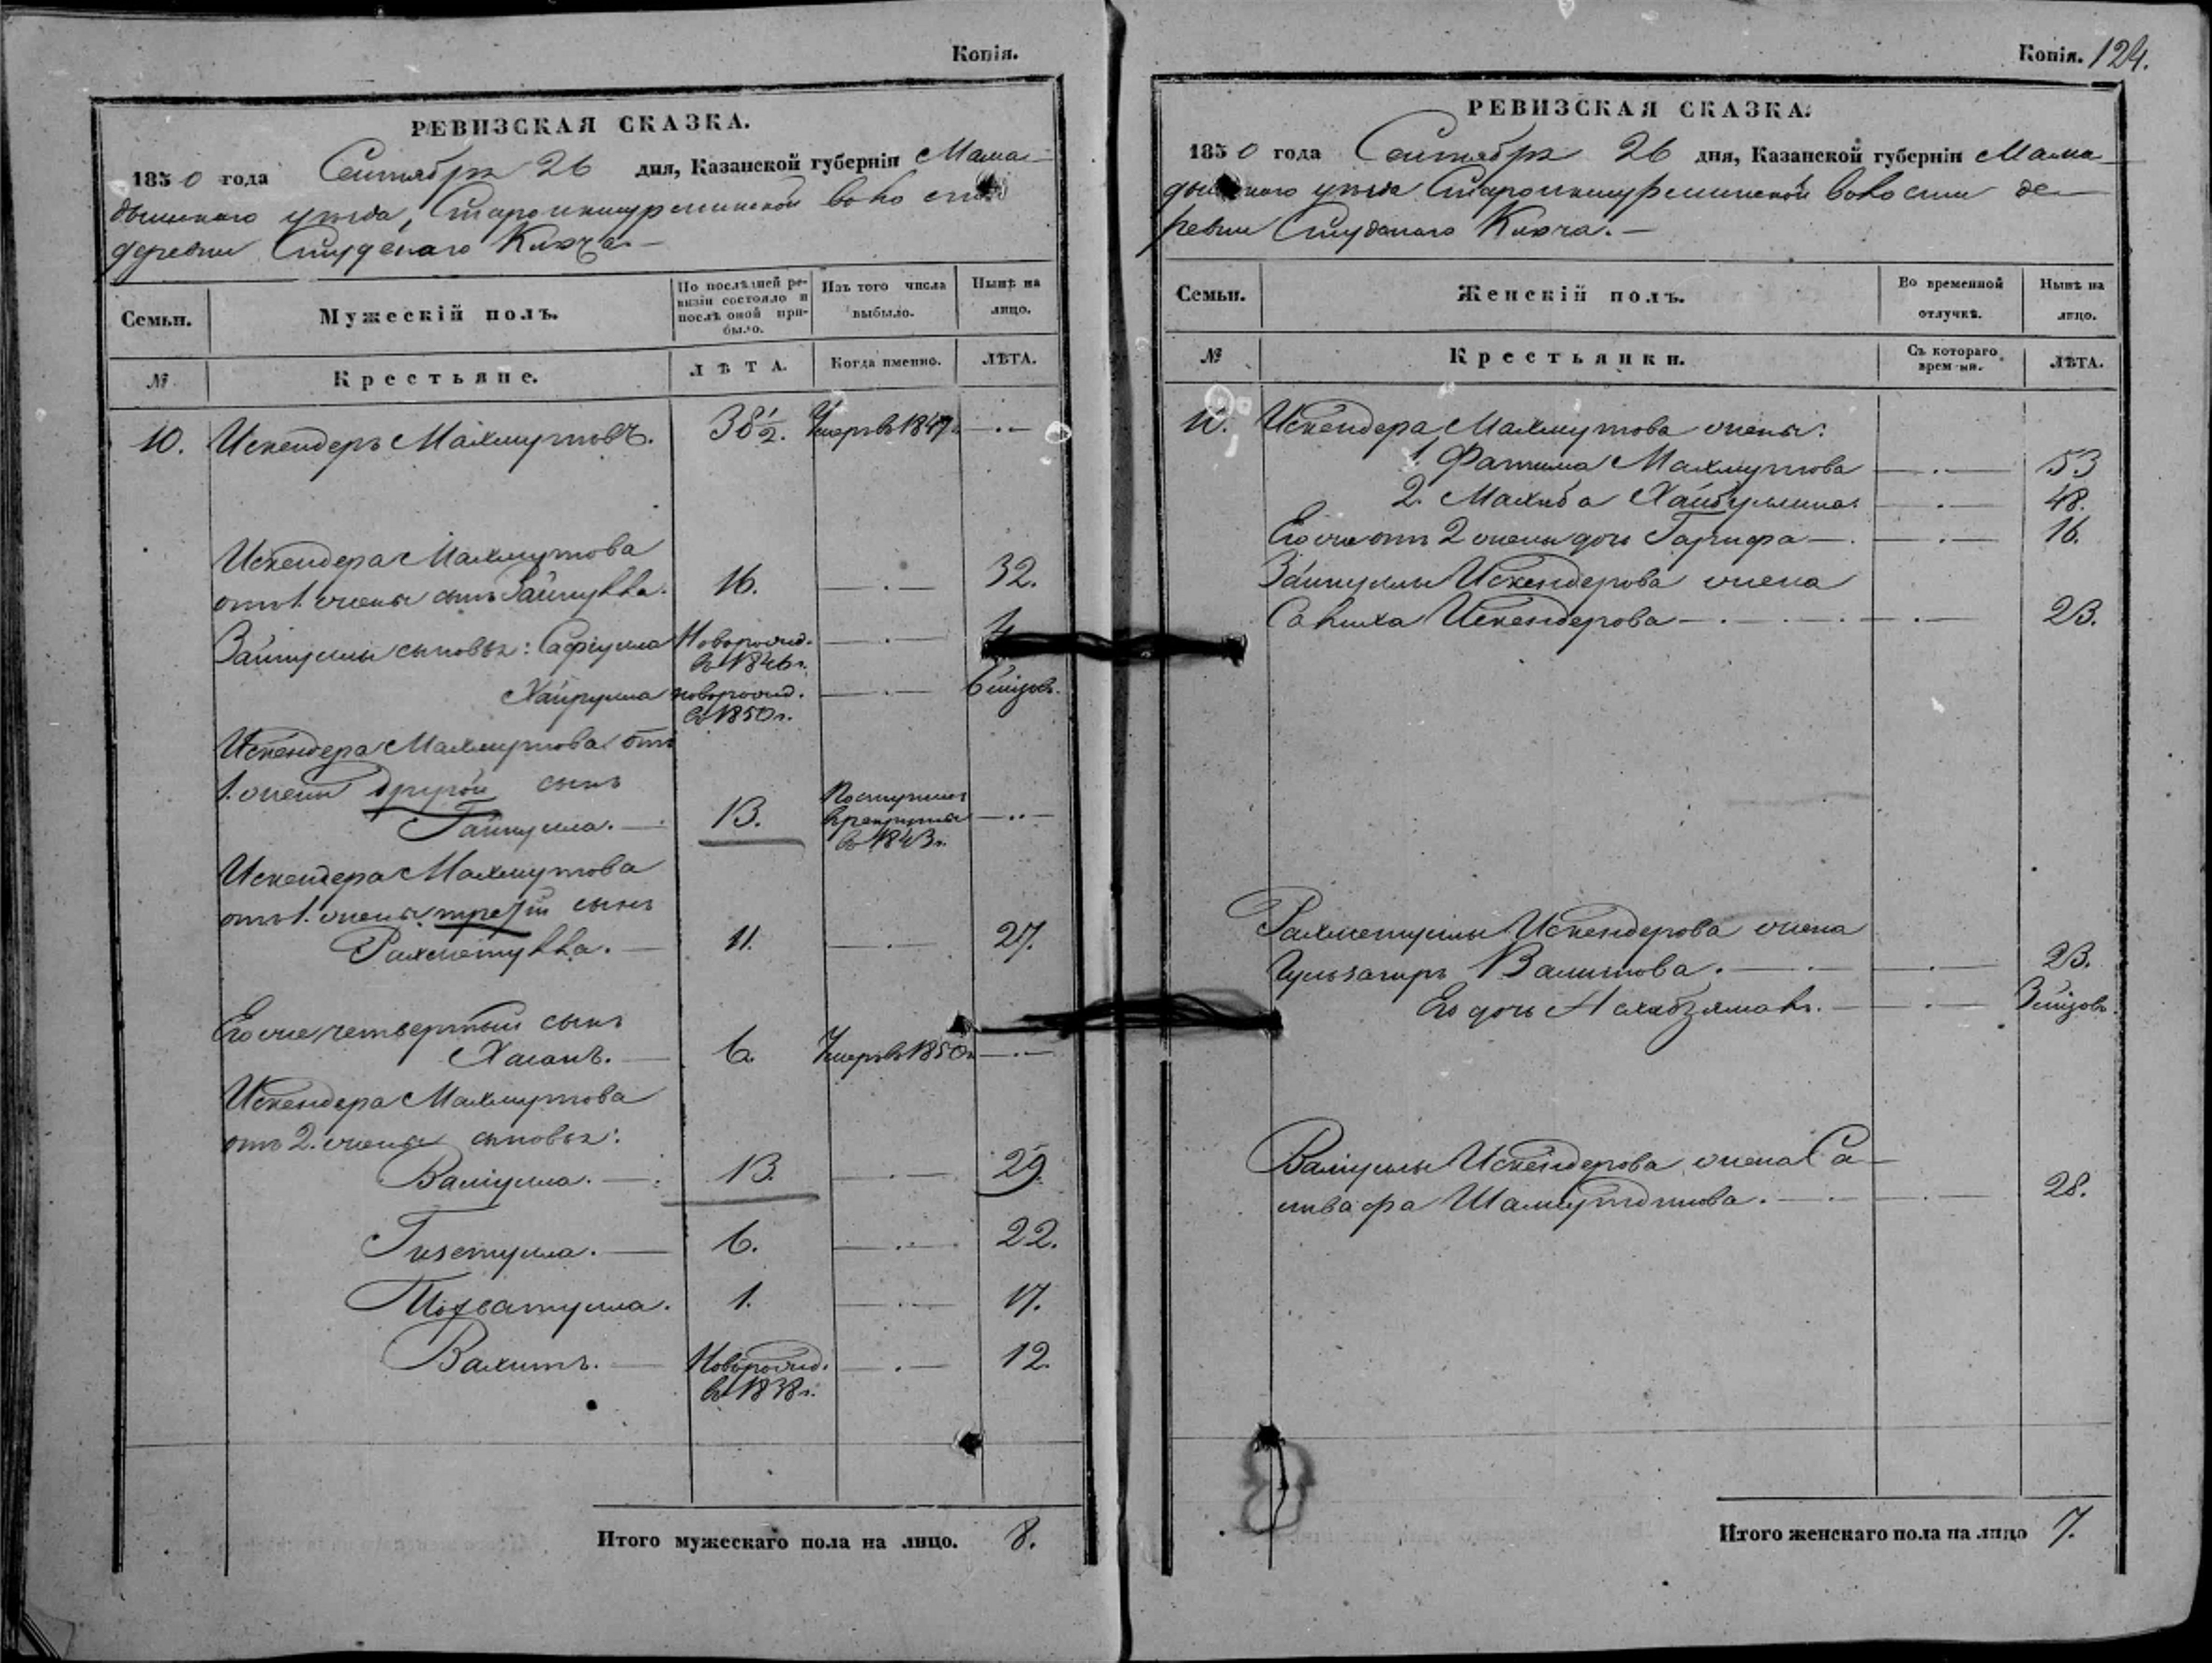 Копія.
РЕВИЗСКАЯ СКАЗКА.
1850 года Сентября 26 дня, Казанской губерніи Мама-
дышскаго уѣзда, Староикшурминской воло сти
деревни Студенаго Ключа.—
Семьи.
Мужескій полъ.
По послѣдней ре-
визіи состояло и
послѣ оной при-
было.
Изъ того числа
выбыло.
Нынѣ на
лицо.
№
Крестьяне.
ЛѢТА.
Когда именно.
ЛѢТА.
10. Искендеръ Махмутовъ. 38½. Умеръ въ 1847г. —··—
Искендера Махмутова
отъ 1. жены сынъ Зайнулла. 16. —·— 32.
Зайнуллы сыновья: Сафіулла Новорожд. —·— 4
въ 1846г.
Хайрулла новорожд. —·— 6 мѣсяцовъ.
въ 1850г.
Искендера Махмутова отъ
1. жены другой сынъ
Гайнулла.— 13. Поступилъ
в рекруты
въ 1843г. —··—
Искендера Махмутова
отъ 1. жены третій сынъ
Рахметулла.— 11. —·— 27.
Его же четвертый сынъ
Хасанъ.— 6. Умеръ въ 1850г. —··—
Искендера Махмутова
отъ 2. жены сыновья:
Валіулла.— 13. —·— 29.
Гизетулла.— 6. —·— 22.
1. —·— 17.
Вахитъ.— Новорожд. —·— 12.
въ 1838г.
Итого мужескаго пола на лицо. 8.
Копія. 124.
РЕВИЗСКАЯ СКАЗКА.
1850 года Сентября 26 дня, Казанской губерніи Мама-
дышскаго уѣзда Староикшурминской волости де-
ревни Студенаго Ключа.—
Семьи.
Женскій полъ.
Во временной
отлучкѣ.
Нынѣ на
лицо.
№
Крестьянки.
Съ котораго
времени.
ЛѢТА.
10. Искендера Махмутова жены:
1. Фатима Махмутова —·— 53
2. Махиба Хайбуллина. —·— 48.
Его же отъ 2 жены дочь Гарифа—. —·— 16.
Зайнуллы Искендерова жена
Салиха Искендерова— —·— 23.
Рахметуллы Искендерова жена
Гульзагиръ Валитова.— —·— 23.
Его дочь —·— 3 мѣсяцовъ.
Валіуллы Искендерова жена Са-
28.
Итого женскаго пола на лицо 7.